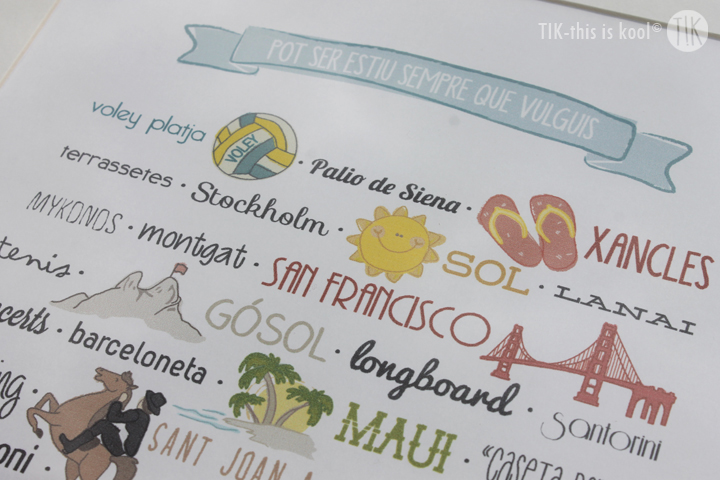 TIK-this is kool© TIK
POT SER ESTIU SEMPRE QUE VULGUIS
voley platja VOLEY · Palio de Siena · XANCLES
terrassetes · Stockholm · SOL · LANAI
MYKONOS · montgat · SAN FRANCISCO
tenis · GÓSOL · longboard · Santorini
barceloneta · MAUI ·
SANT JOAN